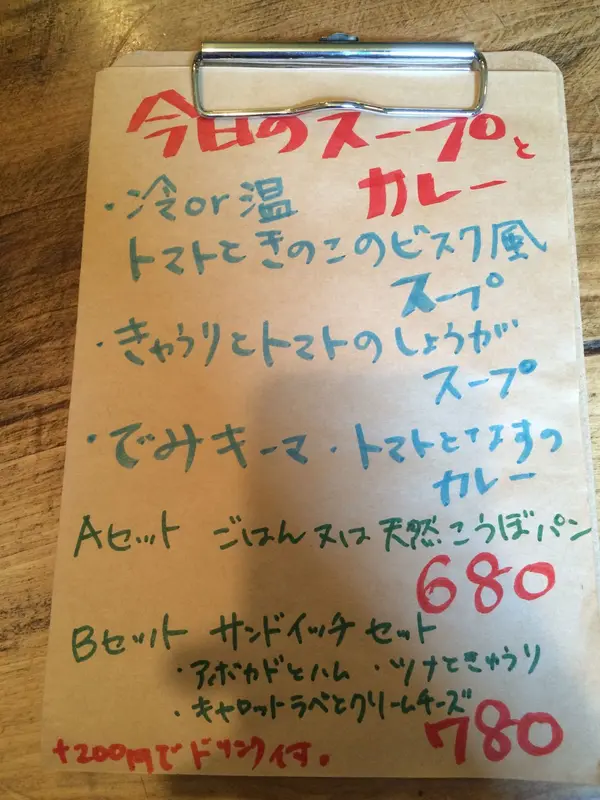 今日のスープと
カレー
・冷or温
トマトときのこのビスク風
スープ
・きゅうりとトマトのしょうが
スープ
・でみキーマ・トマトとなすの
カレー
Aセット ごはん又は天然こうぼパン
680
Bセット サンドイッチセット
・アボカドとハム ・ツナときゅうり
・キャロットラペとクリームチーズ
780
+200円でドリンク付す。